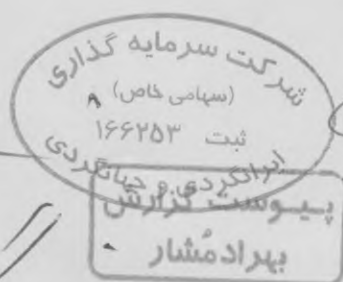 شرکت سرمایه گذاری
(سهامی خاص)
ثبت ۱۶۶۲۵۳
ایرانگردی و جهانگردی
پیوست گزارش
بهراد مُشار